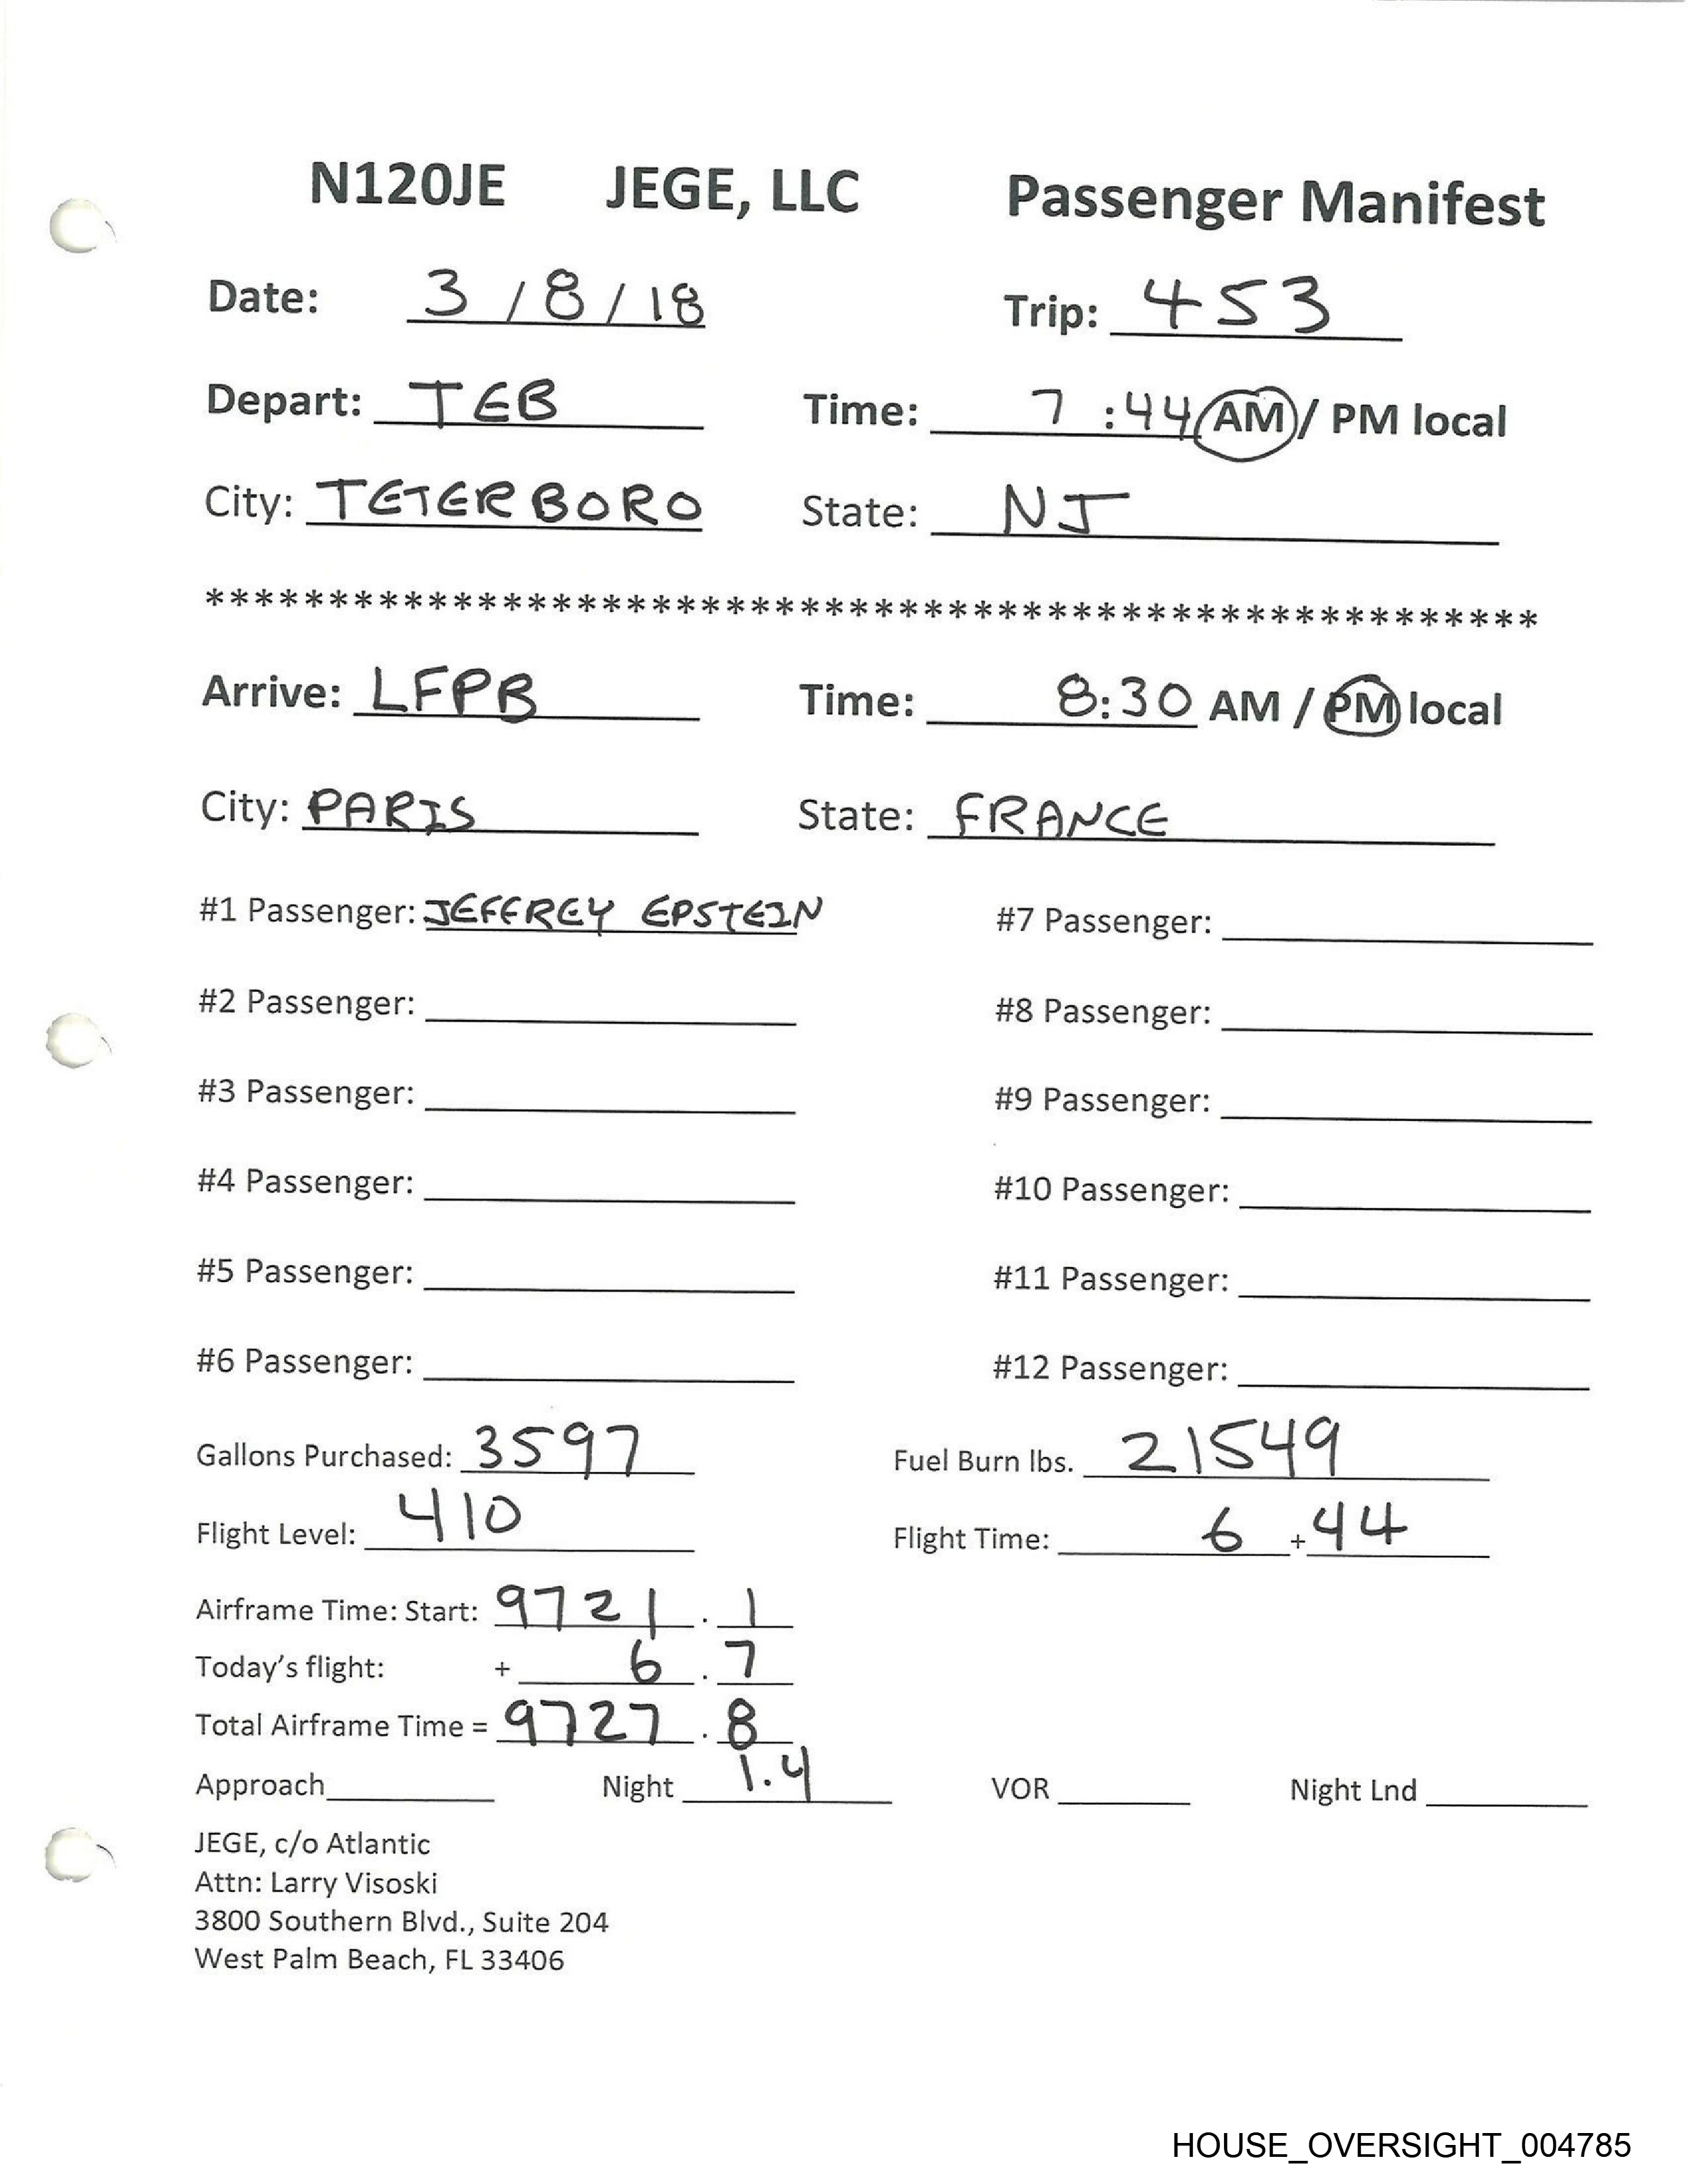 N120JE JEGE, LLC Passenger Manifest
Date: 3 / 8 / 18 Trip: 453
Depart: TEB Time: 7 :44 AM / PM local
City: TETERBORO State: NJ
******************************************************
Arrive: LFPB Time: 8:30 AM / PM local
City: PARIS State: FRANCE
#1 Passenger: JEFFREY EPSTEIN #7 Passenger:
#2 Passenger: #8 Passenger:
#3 Passenger: #9 Passenger:
#4 Passenger: #10 Passenger:
#5 Passenger: #11 Passenger:
#6 Passenger: #12 Passenger:
Gallons Purchased: 3597 Fuel Burn lbs. 21549
Flight Level: 410 Flight Time: 6 + 44
Airframe Time: Start: 9721 . 1
Today's flight: + 6 . 7
Total Airframe Time = 9727 . 8
Approach Night 1.4 VOR Night Lnd
JEGE, c/o Atlantic
Attn: Larry Visoski
3800 Southern Blvd., Suite 204
West Palm Beach, FL 33406
HOUSE_OVERSIGHT_004785